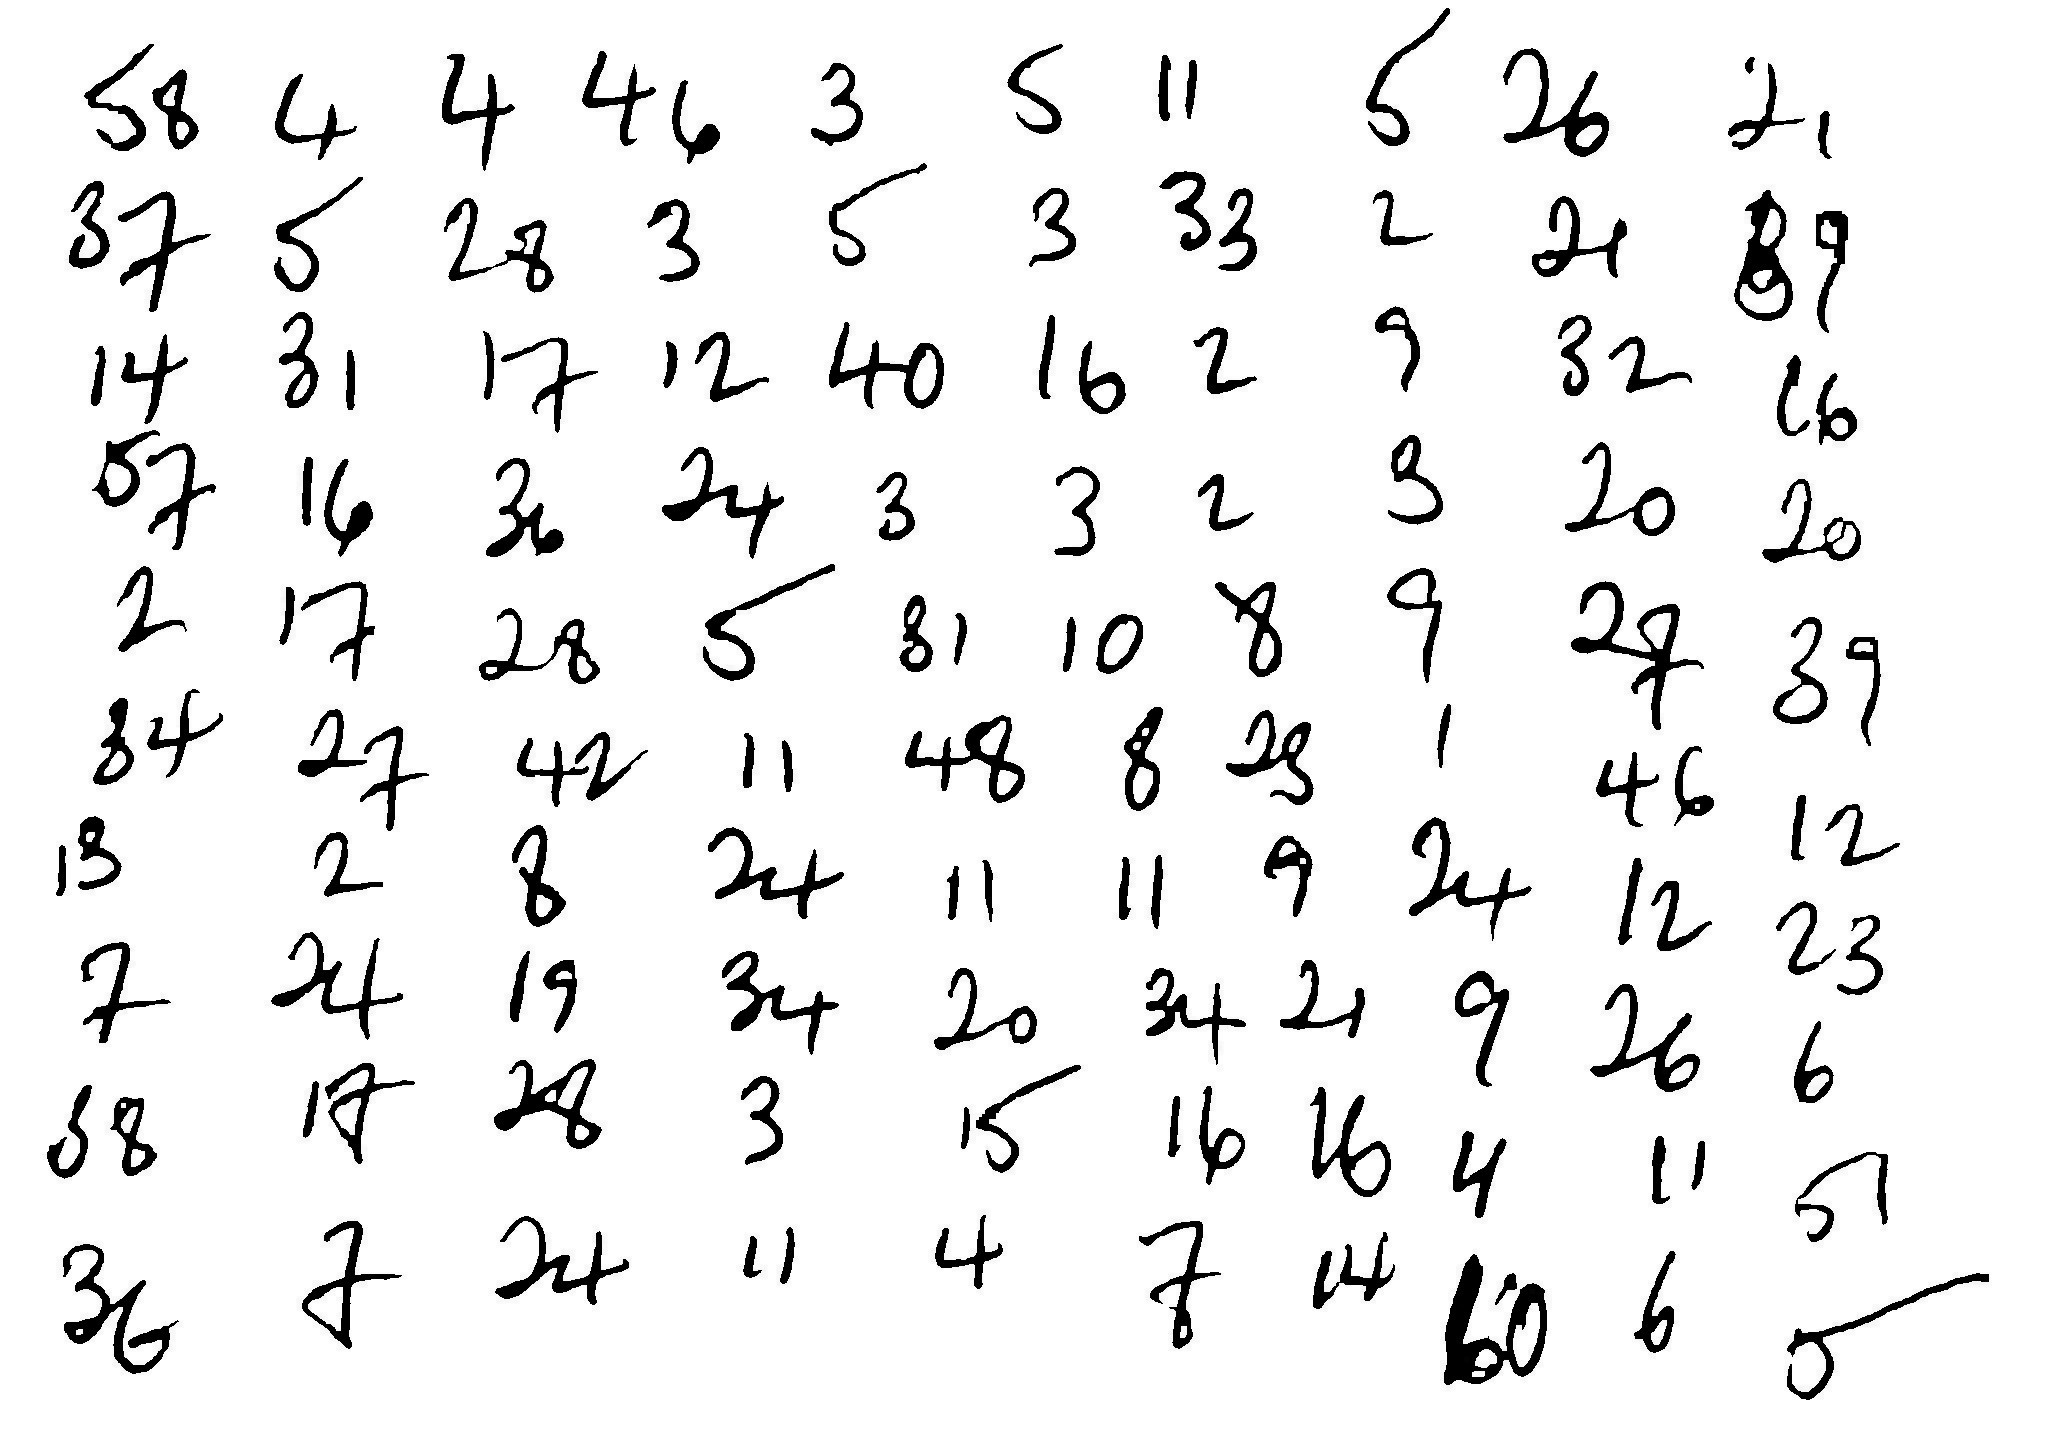 58 4 4 46 3 5 11 5 26 21
37 5 28 3 5 3 33 2 21 39
14 31 17 12 40 16 2 9 32 16
57 16 36 24 3 3 2 3 20 20
2 17 28 5 31 10 8 9 27 39
34 27 42 11 48 8 23 1 46 12
13 2 8 24 11 11 9 24 12 23
7 24 19 34 20 34 21 9 26 6
38 17 28 3 15 16 16 4 11 51
36 7 24 11 4 7 14 60 6 5